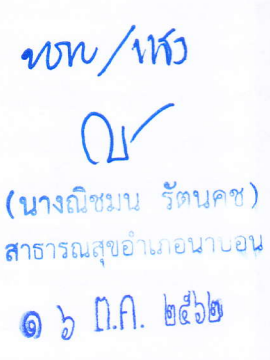 ทราบ/แจ้ง
(นางณิชมน รัตนคช)
สาธารณสุขอำเภอนาบอน
๑ ๖ ต.ค. ๒๕๖๒